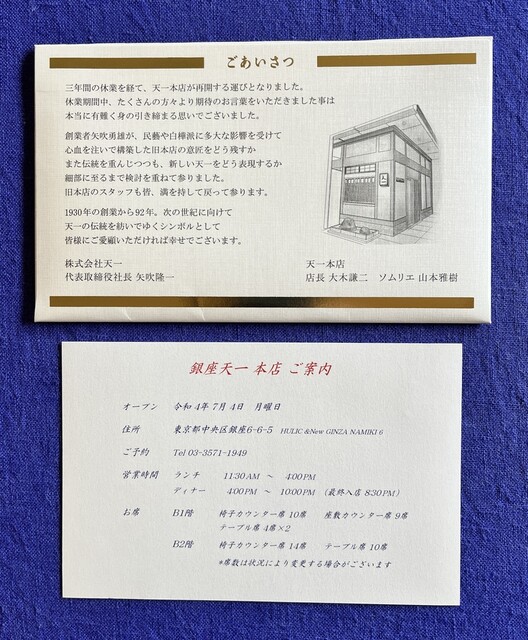 ごあいさつ
三年間の休業を経て、天一本店が再開する運びとなりました。
休業期間中、たくさんの方々より期待のお言葉をいただきました事は
本当に有難く身の引き締まる思いでございました。
創業者矢吹勇雄が、民藝や白樺派に多大な影響を受けて
心血を注いで構築した旧本店の意匠をどう残すか
また伝統を重んじつつも、新しい天一をどう表現するか
細部に至るまで検討を重ねて参りました。
旧本店のスタッフも皆、満を持して戻って参ります。
1930年の創業から92年。次の世紀に向けて
天一の伝統を紡いでゆくシンボルとして
皆様にご愛顧いただければ幸せでございます。
株式会社天一
代表取締役社長 矢吹隆一
天一本店
店長 大木謙二 ソムリエ 山本雅樹
銀座天一 本店 ご案内
オープン 令和4年7月4日 月曜日
住所 東京都中央区銀座6-6-5 HULIC &New GINZA NAMIKI 6
ご予約 Tel 03-3571-1949
営業時間 ランチ 11:30AM ～ 4:00PM
ディナー 4:00PM ～ 10:00PM (最終入店 8:30PM)
お席 B1階 椅子カウンター席 10席 座敷カウンター席 9席
テーブル席 4席×2
B2階 椅子カウンター席 14席 テーブル席 10席
*席数は状況により変更する場合がございます